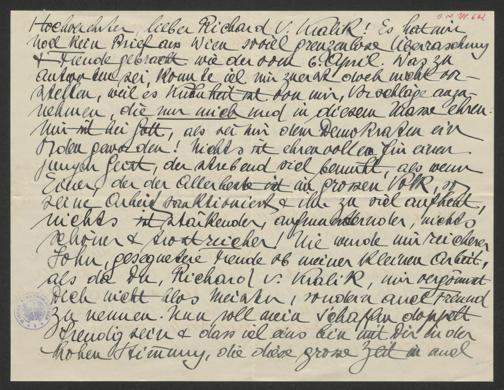 Hochverehrter, lieber Richard v. Kralik! Es hat mir
noch kein Brief aus Wien soviel grenzenlose Überraschung
& Freude gebracht wie der vom 6. April. Was zu
antworten sei, konnte ich mir zuerst doch nicht vor-
stellen, weil es Kühnheit ist von mir, Vorschläge anzu-
nehmen, die nur mich und in diesem Masse ehren.
Mir ist bei Gott, als sei mir dem Demokraten ein
Orden geworden! Nichts ist ehrenvoller für einen
jungen Geist, der strebend sich bemüht, als wenn
Einer, der der Allerbeste ist im grossen Volk,
seine Arbeit sanktioniert & ihn zu sich aufhebt,
nichts ist stärkender, aufmunternder, nichts
schöner & trostreicher! Nie wurde mir reicherer
Lohn, gesegnetere Freude ob meiner kleinen Arbeit,
als da Du, Richard v. Kralik, mir vergönnst
Dich nicht blos Meister, sondern auch Freund
zu nennen. Nun soll mein Schaffen doppelt
freudig sein & dass ich eins bin mit Dir in der
hohen Stimmung, die diese grosse Zeit in